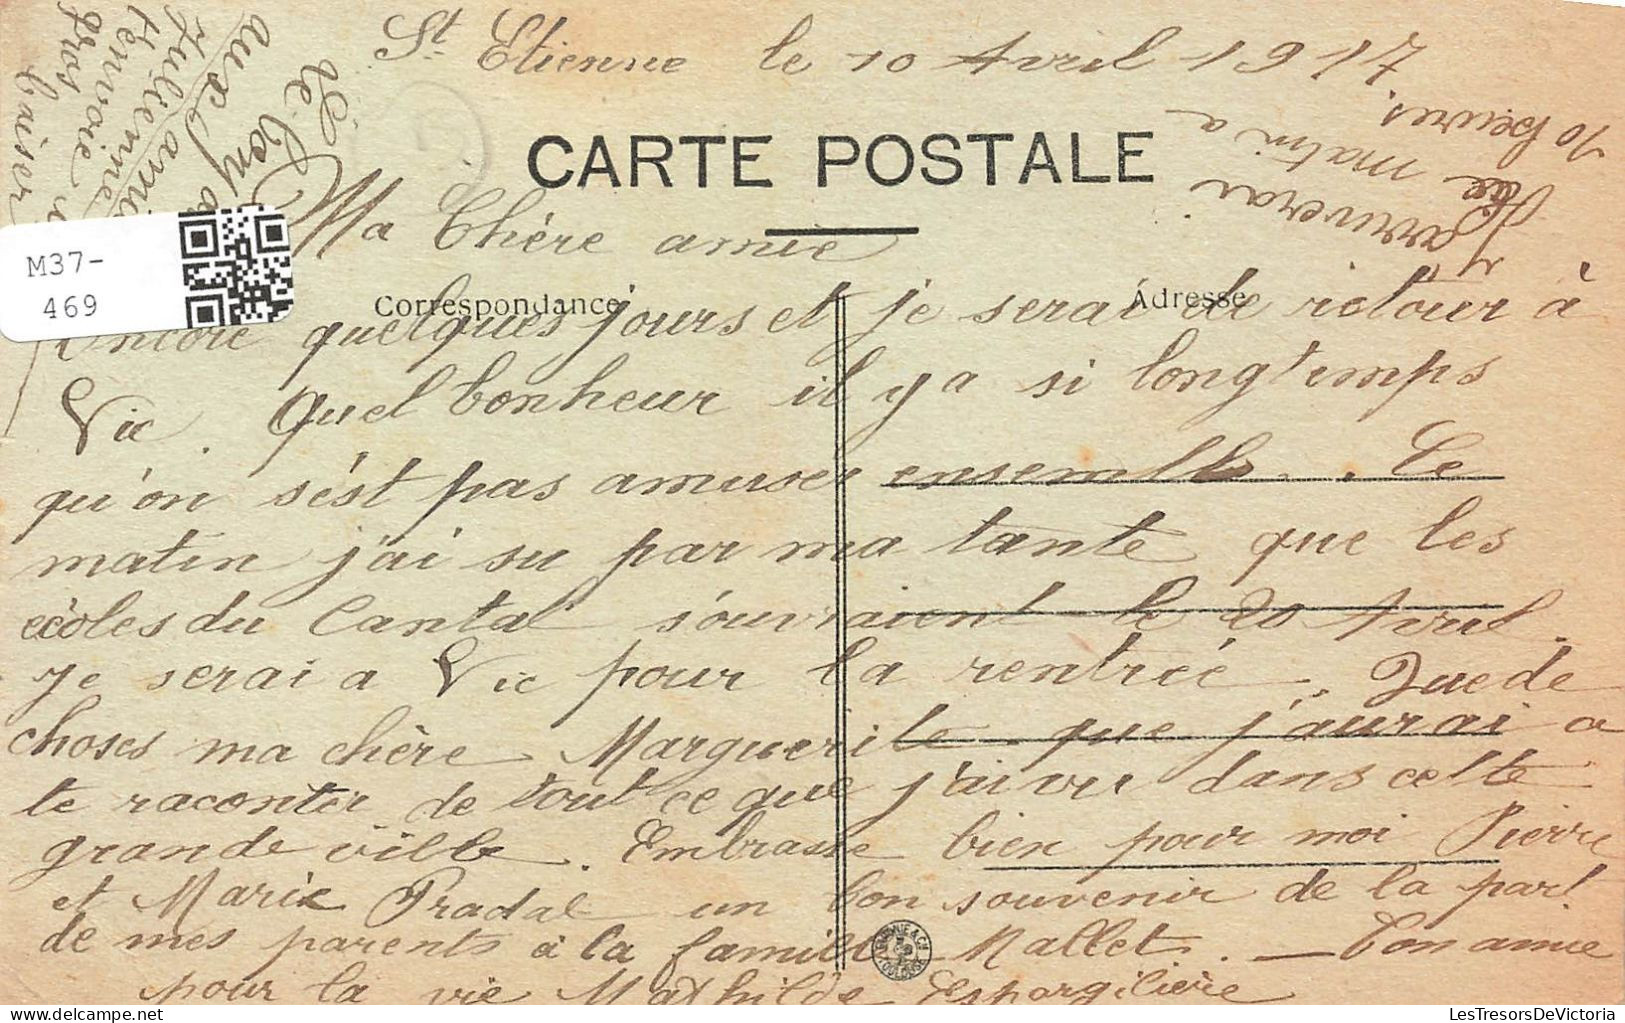 St Etienne le 10 Avril 1917
CARTE POSTALE
Correspondance
Adresse
M37-
469
Ma Chère amie
Encore quelques jours et je serai de retour à
Vic. Quel bonheur il y a si longtemps
qu'on s'est pas amuser ensemble. Ce
matin j'ai su par ma tante que les
écoles du Cantal s'ouvraient le 20 Avril.
Je serai a Vic pour la rentrée. Que de
choses ma chère Marguerite que j'aurai a
te raconter de tout ce que j'ai vu dans cette
grande ville. Embrasse bien pour moi Pierre
et Marie Pradal un bon souvenir de la part
de mes parents à la famille Mallet. — Ton amie
pour la vie Mathilde Espargilière
J'arriverai
le matin a
10 heures.
le bonjour
aux amies
Julienne
t'envoie un
gros
baiser
LesTresorsDeVictoria